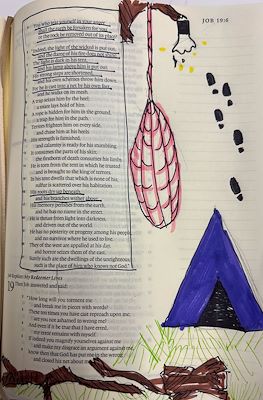 JOB 19:6
4 You who tear yourself in your anger,
shall the earth be forsaken for you,
or the rock be removed out of its place?
5 "Indeed, the light of the wicked is put out,
and the flame of his fire does not shine.
6 The light is dark in his tent,
and his lamp above him is put out.
7 His strong steps are shortened,
and his own schemes throw him down.
8 For he is cast into a net by his own feet,
and he walks on its mesh.
9 A trap seizes him by the heel;
a snare lays hold of him.
10 A rope is hidden for him in the ground,
a trap for him in the path.
11 Terrors frighten him on every side,
and chase him at his heels.
12 His strength is famished,
and calamity is ready for his stumbling.
13 It consumes the parts of his skin;
the firstborn of death consumes his limbs.
14 He is torn from the tent in which he trusted
and is brought to the king of terrors.
15 In his tent dwells that which is none of his;
sulfur is scattered over his habitation.
16 His roots dry up beneath,
and his branches wither above.
17 His memory perishes from the earth,
and he has no name in the street.
18 He is thrust from light into darkness,
and driven out of the world.
19 He has no posterity or progeny among his people,
and no survivor where he used to live.
20 They of the west are appalled at his day,
and horror seizes them of the east.
21 Surely such are the dwellings of the unrighteous,
such is the place of him who knows not God."
Job Replies: My Redeemer Lives
19 Then Job answered and said:
2 "How long will you torment me
and break me in pieces with words?
3 These ten times you have cast reproach upon me;
are you not ashamed to wrong me?
4 And even if it be true that I have erred,
my error remains with myself.
5 If indeed you magnify yourselves against me
and make my disgrace an argument against me,
6 know then that God has put me in the wrong
and closed his net about me.